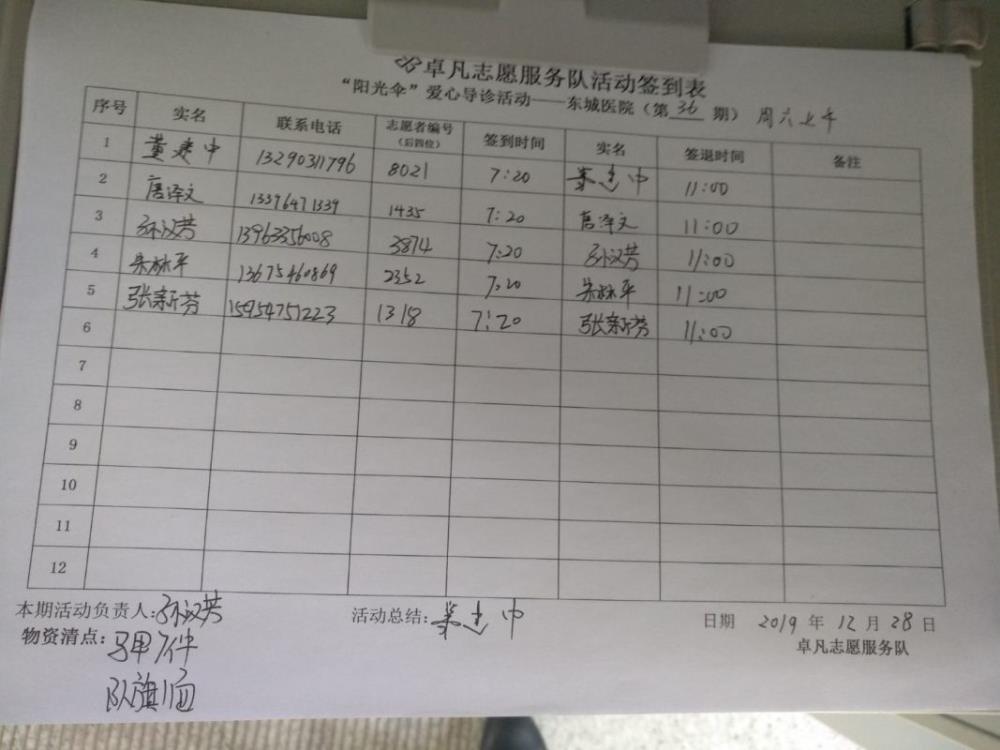 卓凡志愿服务队活动签到表
“阳光伞”爱心导诊活动——东城医院（第 36 期） 周六上午
序号 实名 联系电话 志愿者编号（后四位） 签到时间 实名 签退时间 备注
1 董建中 13290311796 8021 7:20 董建中 11:00
2 唐泽文 13376471339 1435 7:20 唐泽文 11:00
3 孙汉芳 13963356008 3874 7:20 孙汉芳 11:00
4 朱林平 13675460869 2352 7:20 朱林平 11:00
5 张新芬 15954751223 1318 7:20 张新芬 11:00
6
7
8
9
10
11
12
本期活动负责人:孙汉芳 活动总结: 董建中 日期 2019 年 12 月 28 日
物资清点: 马甲7件 卓凡志愿服务队
队旗1面